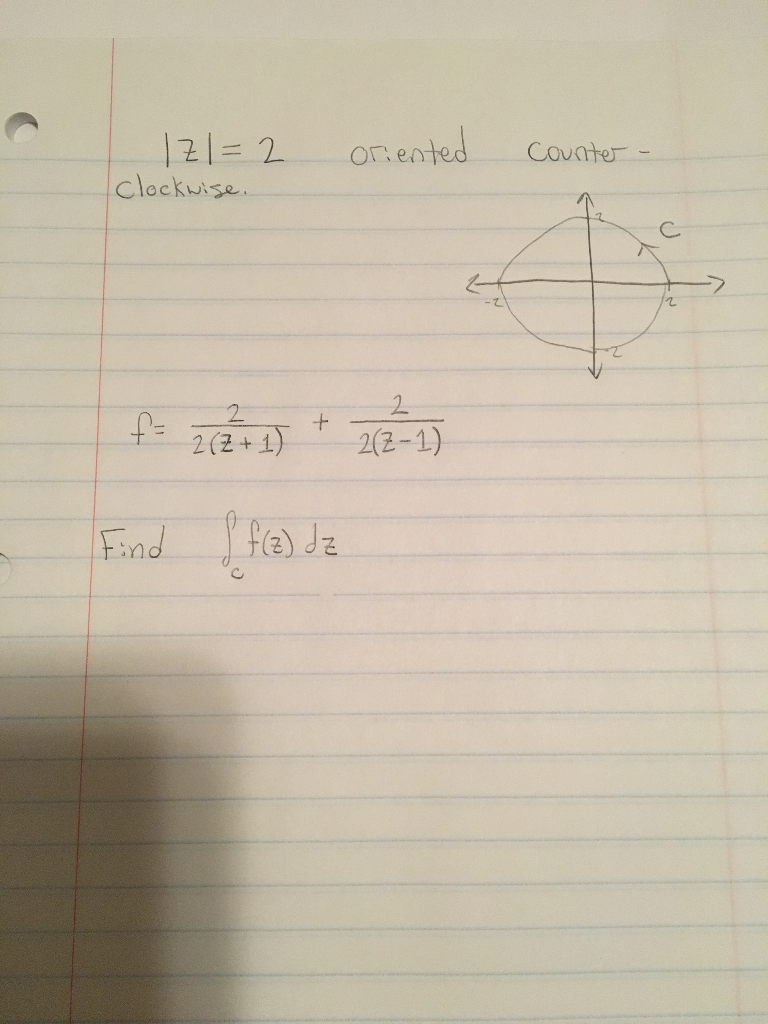 |z| = 2 oriented counter-
clockwise.
2
C
-2
2
-2
f= 2/2(z+1) + 2/2(z-1)
Find ∫_C f(z) dz